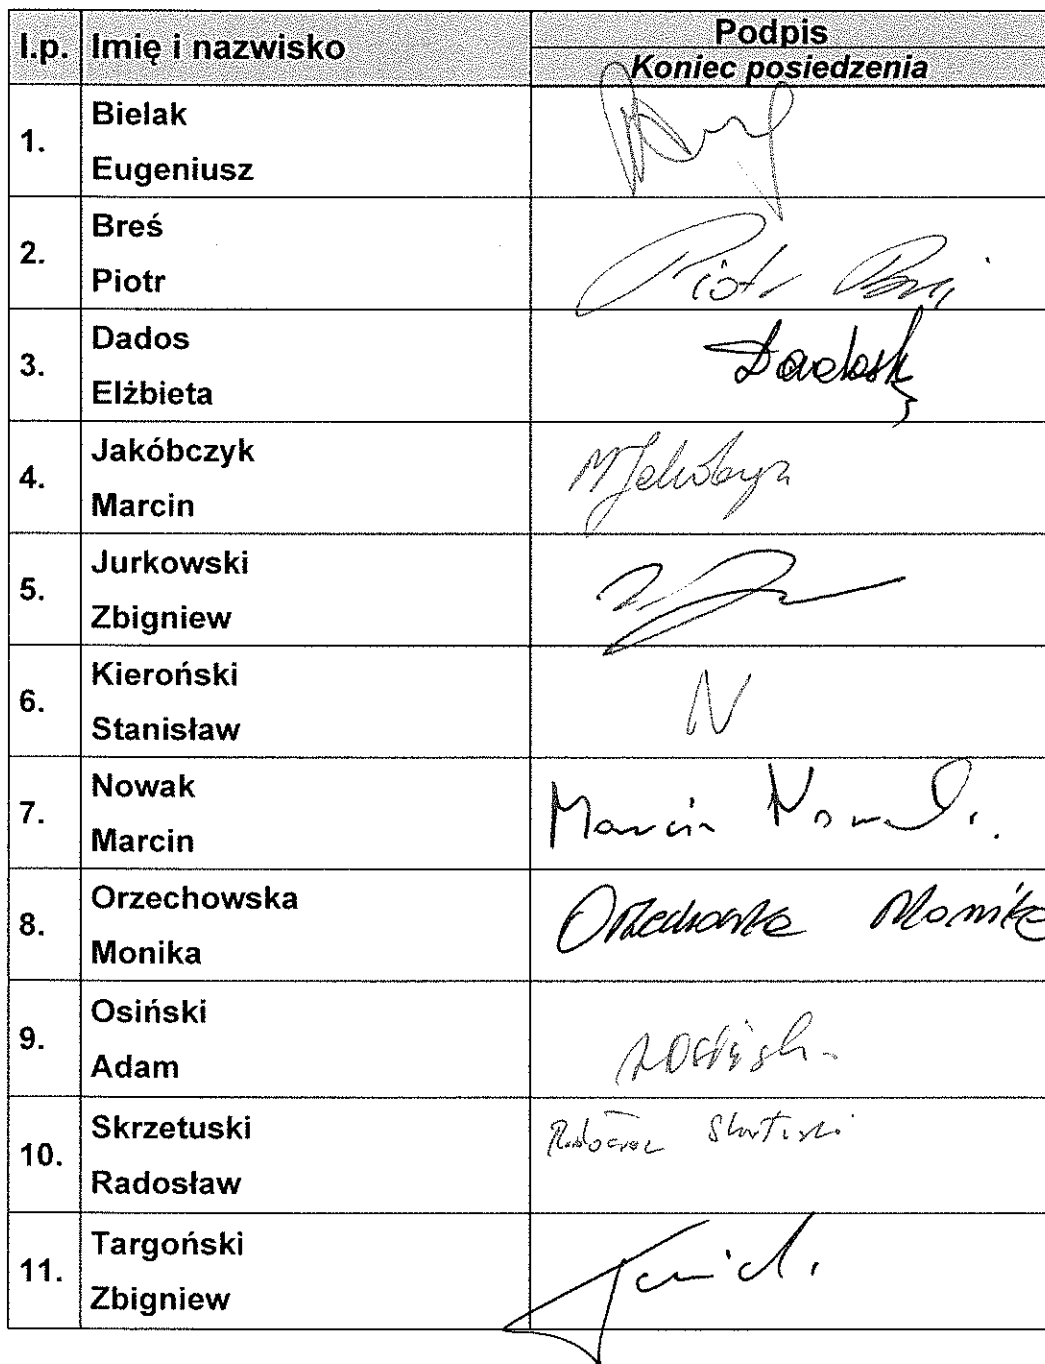 l.p. Imię i nazwisko Podpis
Koniec posiedzenia
1. Bielak
Eugeniusz
2. Breś
Piotr
Piotr
3. Dados
Elżbieta
4. Jakóbczyk
Marcin
5. Jurkowski
Zbigniew
6. Kieroński
Stanisław
N
7. Nowak
Marcin
Marcin
8. Orzechowska
Monika
Orzechowska Monika
9. Osiński
Adam
10. Skrzetuski
Radosław
11. Targoński
Zbigniew